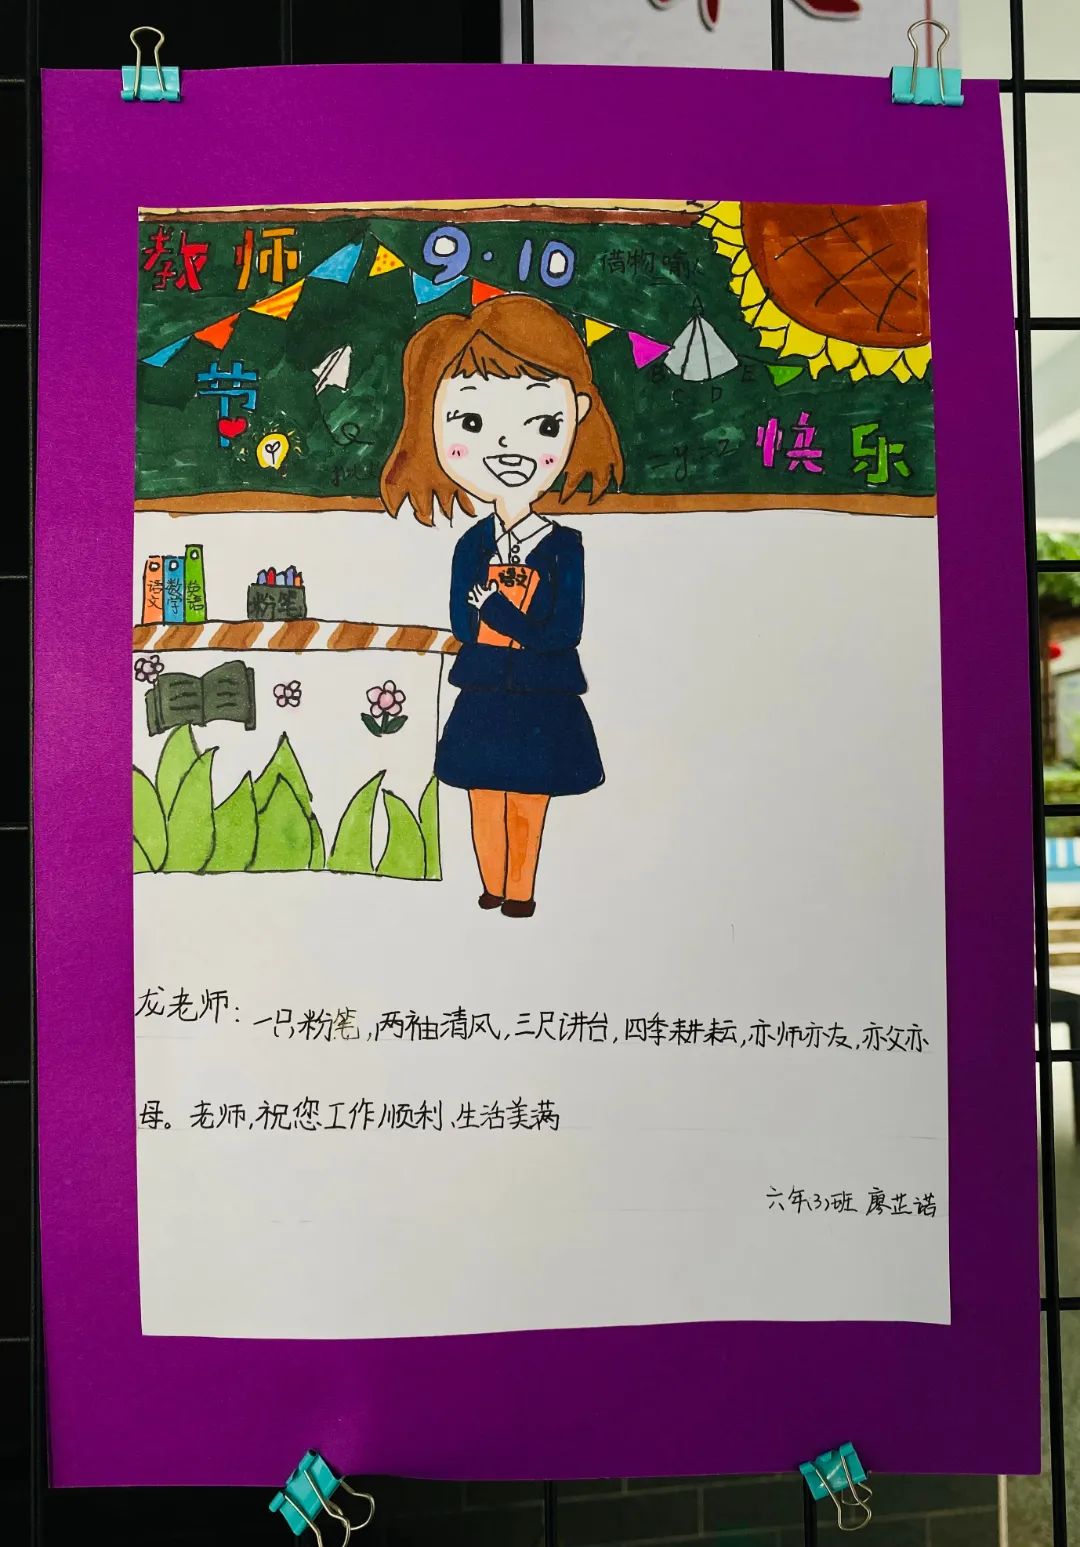 教师
9·10
借物喻
节
B C D E
快乐
语文
数学
英语
粉笔
语文
龙老师：一只粉笔,两袖清风,三尺讲台,四季耕耘,亦师亦友,亦父亦
母。老师,祝您工作顺利、生活美满
六年(3)班 廖芷诺